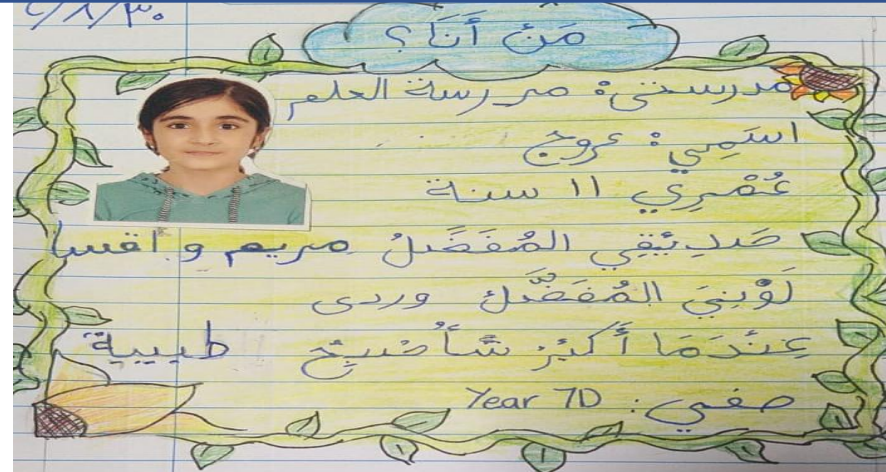 مَنْ أَنَا؟
مدرستي: مدرسة العلم
اسَمِي: عروج
عُمْرِي ١١ سنة
صَدِيْقِي المُفَضَّلُ مريم و اقسا
لَوْنِيَ المُفَضَّلُ وردى
عِنْدَمَا أَكْبُرْ سَأُصْبِحُ طبيبة
صفي: Year 7D